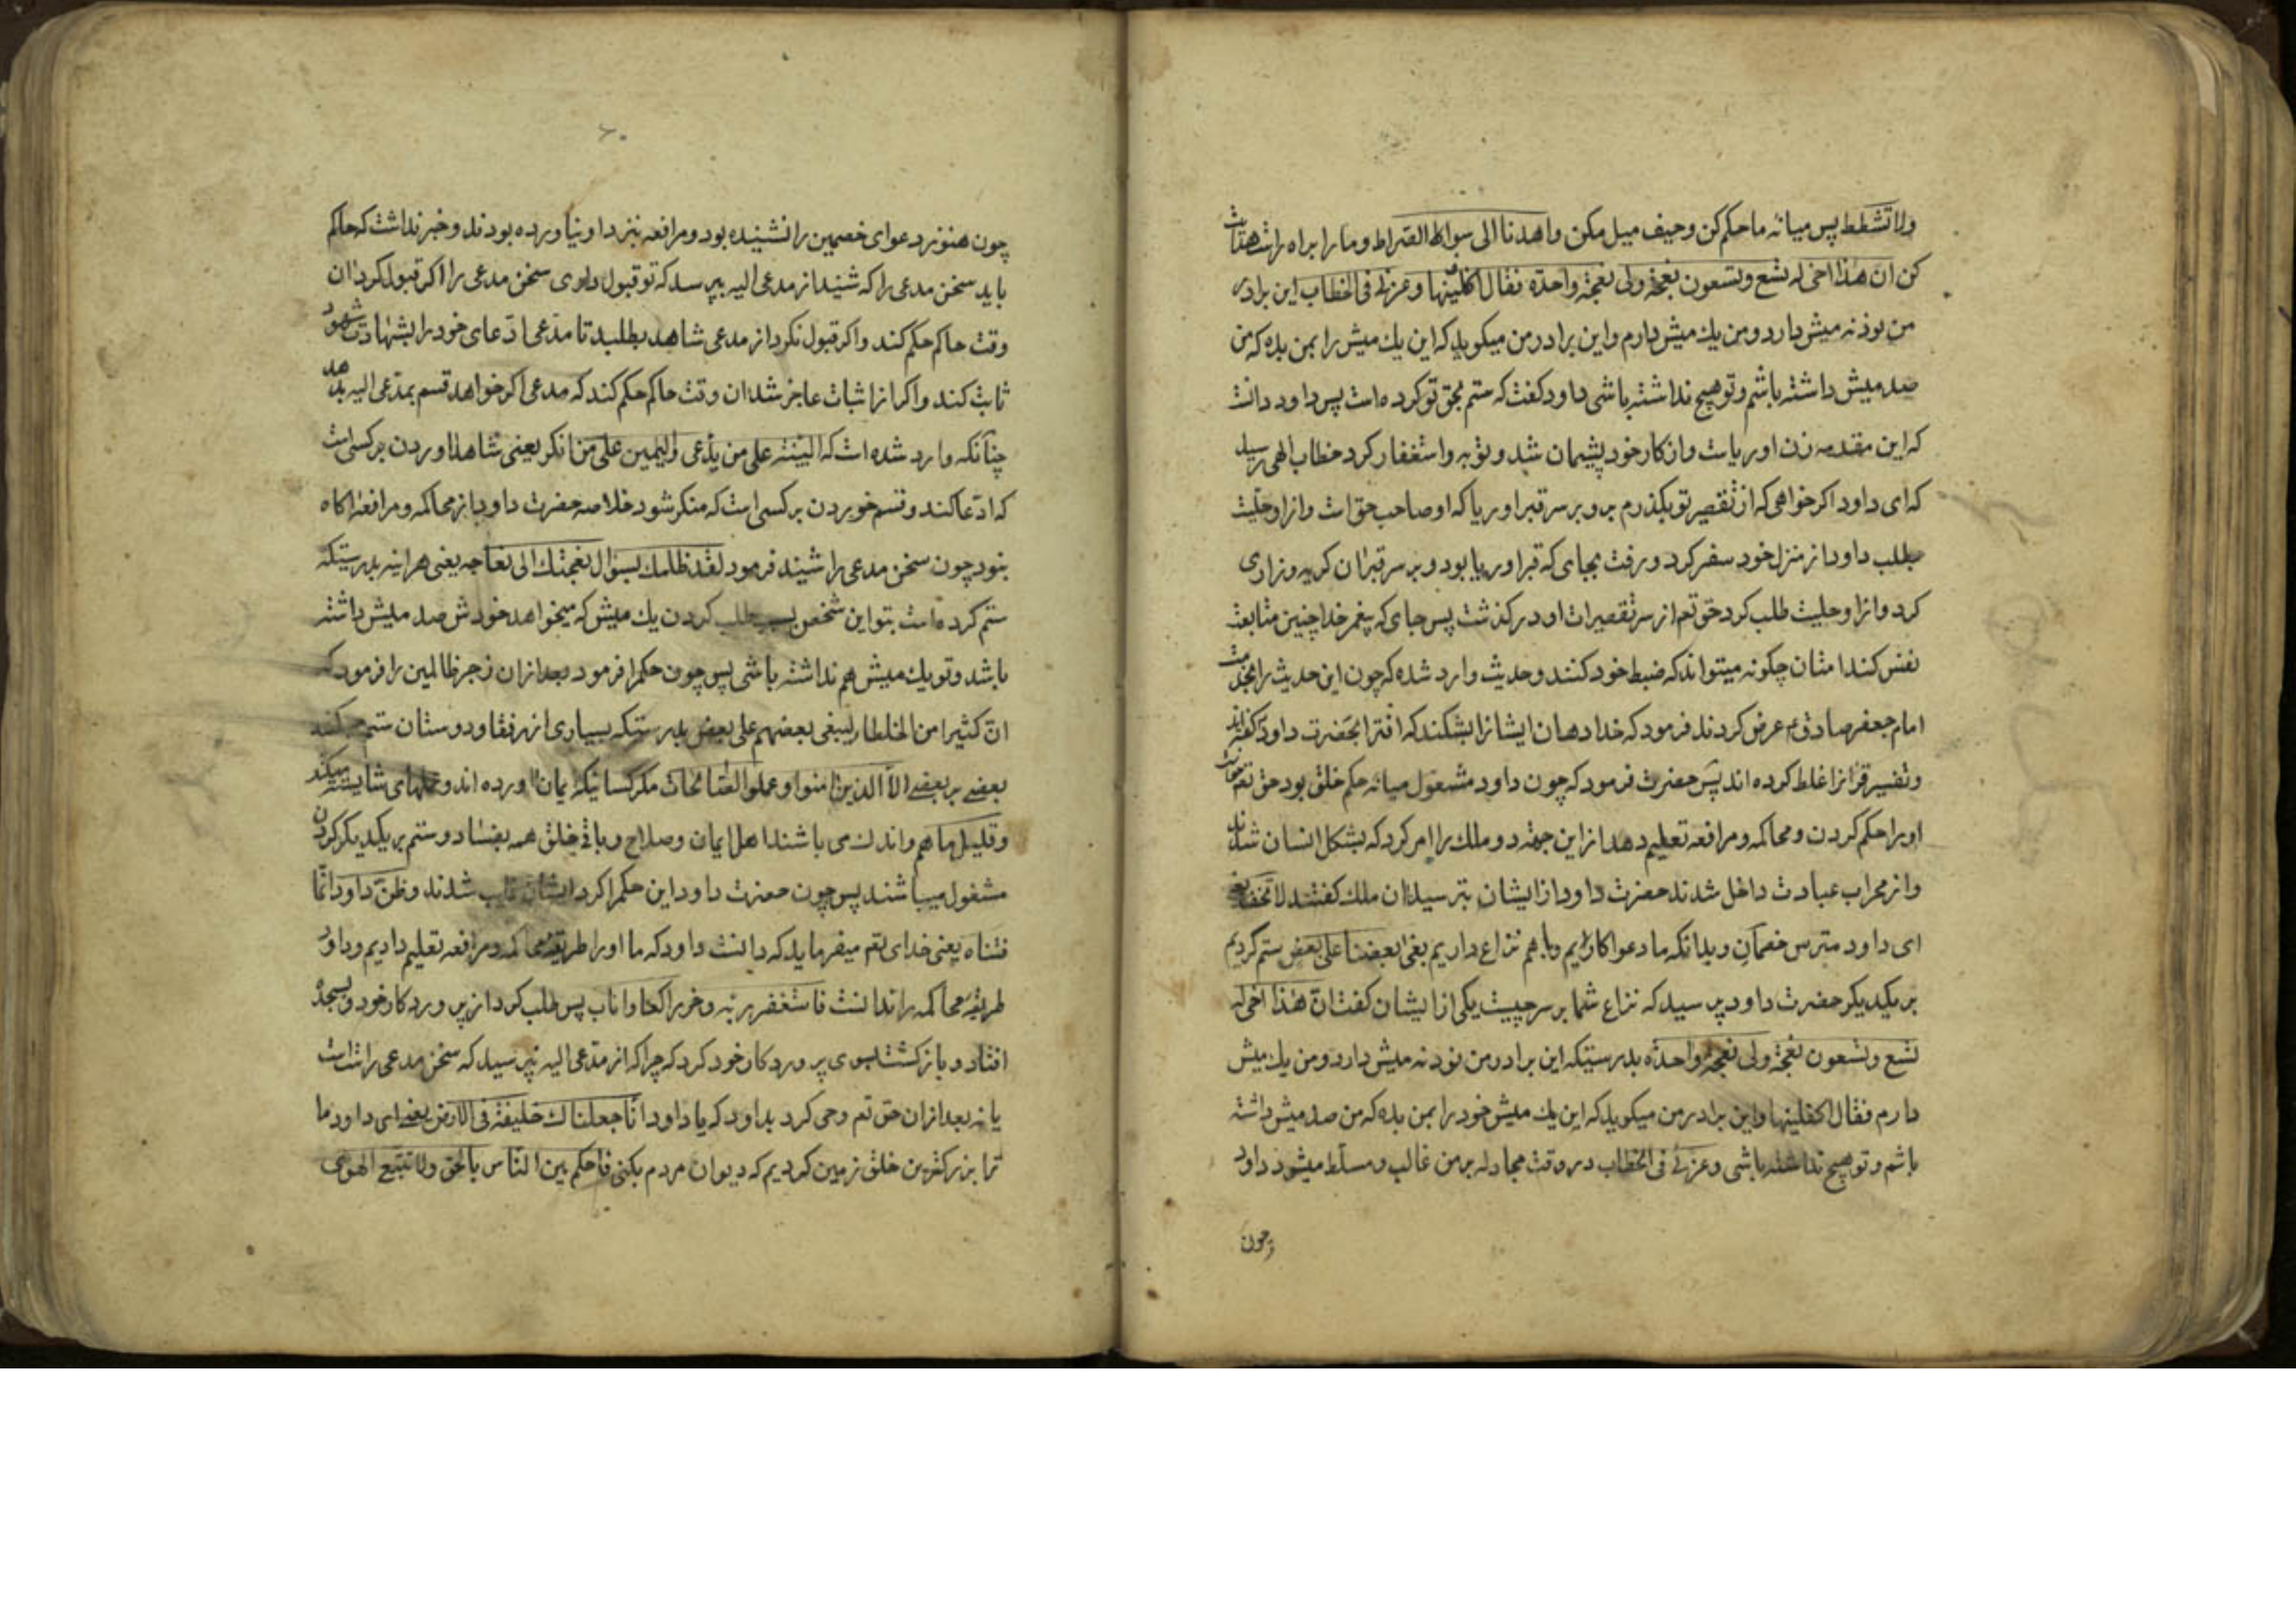 ولا تشطط پس میانه ما حکم کن وحیف میل مکن واهدنا الی سواء الصراط وما را براه راست هدایت
کن ان هذا اخی له تسع وتسعون نعجة ولی نعجة واحدة فقال اکفلنیها وعزنی فی الخطاب این برادر
من نود نه میش دارد ومن یك میش دارم واین برادر من میکوید که این یك میش را بمن بده که من
صد میش داشته باشم وتو هیچ نداشته باشی داود کفت که ستم بحق تو کرده است پس داود دانست
که این مقدمه زن اوریاست واز کار خود پشیمان شد وتوبه واستغفار کرد خطاب الهی رسید
که ای داود اکر خواهی که از تقصیر تو بکذرم برو بر سر قبر اوریا که او صاحب حق است وازاو حلیت
بطلب داود از منزل خود سفر کرد ورفت بجای که قبر اوریا بود وبر سر قبر ان کریه وزاری
کرد وازاو حلیت طلب کرد حق تع از سر تقصیرات او در کذشت پس جای که پیغمر خدا چنین متابعت
نفس کند امتان چکونه میتواند که ضبط خود کنند وحدیث وارد شده که چون این حدیث را بخدمت
امام جعفر صادق ع عرض کردند فرمود که خدا دهان ایشانرا بشکند که افترا بحضرت داود کفته اند
وتفسیر قرانرا غلط کرده اند پس حضرت فرمود که چون داود مشغول میانه حکم خلق بود حق تع میخواست
اورا حکم کردن ومحاکمه ومرافعه تعلیم دهد از این جهة دو ملك را امر کرد که بشکل انسان شدند
واز محراب عبادت داخل شدند حضرت داود از ایشان بترسید ان ملك کفتند لا تخف یعنی
ای داود مترس خصمان وبدانکه ما دعوا کارایم وباهم نزاع داریم بغی بعضنا علی بعض ستم کردیم
بر یکدیکر حضرت داود پرسید که نزاع شما بر سر چیست یکی از ایشان کفت ان هذا اخی له
تسع وتسعون نعجة ولی نعجة واحدة بدرستیکه این برادر من نود نه میش دارد ومن یك میش
دارم فقال اکفلنیها واین برادر من میکوید که این یك میش خود را بمن بده که من صد میش داشته
باشم وتو هیچ نداشته باشی وعزنی فی الخطاب در وقت مجادله بر من غالب ومسلط میشود داود
چون
چون هنوز دعوای خصمین را نشنیده بود ومرافعه نزد او نیاورده بودند وخبر نداشت که حاکم
باید سخن مدعی را که شنید از مدعی الیه بپرسد که تو قبول داری سخن مدعی را اکر قبول کرد ان
وقت حاکم حکم کند واکر قبول نکرد از مدعی شاهد بطلبد تا مدعی ادعای خود را بشهادت شهود
ثابت کند واکر از اثبات عاجز شد ان وقت حاکم حکم کند که مدعی اکر خواهد قسم بمدعی الیه بدهد
چنانکه وارد شده است که البینة علی من یدعی والیمین علی من انکر یعنی شاهد اوردن بر کسی است
که ادعا کند وقسم خوردن بر کسی است که منکر شود خلاصه حضرت داود باز محاکمه ومرافعه اکاه
نبود چون سخن مدعی را شنید فرمود لقد ظلمك بسوال نعجتك الی نعاجه یعنی هراینه بدرستیکه
ستم کرده است بتو این شخص بسبب طلب کردن یك میش که میخواهد خودش صد میش داشته
باشد وتو یك میش هم نداشته باشی پس چون حکم را فرمود بعد از ان زجر ظالمین را فرمود که
ان کثیرا من الخلطاء لیبغی بعضهم علی بعض بدرستیکه بسیاری از رفقا ودوستان ستم میکنند
بعضی بر بعضی الا الذین امنوا وعملوا الصالحات مکر کسانیکه ایمان اورده اند وعملهای شایسته میکند
وقلیل ما هم واندك می باشند اهل ایمان وصلاح وباقی خلق همه بفساد وستم بر یکدیکر کردن
مشغول میباشند پس چون حضرت داود این حکم را کرد ایشان غایب شدند وظن داود انما
فتناه یعنی خدای تع میفرماید که دانست داود که ما اورا طریقه محاکمه ومرافعه تعلیم دادیم وداود
طریقه محاکمه را ندانست فاستغفر ربه وخر راکعا واناب پس طلب کرد از پرورد کار خود وبسجده
افتاد وبازکشت بسوی پروردکار خود کرد که چرا که از مدعی الیه نپرسید که سخن مدعی راست است
یا نه بعد از ان حق تع وحی کرد بداود که یا داود انا جعلناك خلیفة فی الارض یعنی ای داود ما
ترا بزرکترین خلق زمین کردیم که دیوان مردم بکنی فاحکم بین الناس بالحق ولا تتبع الهوی